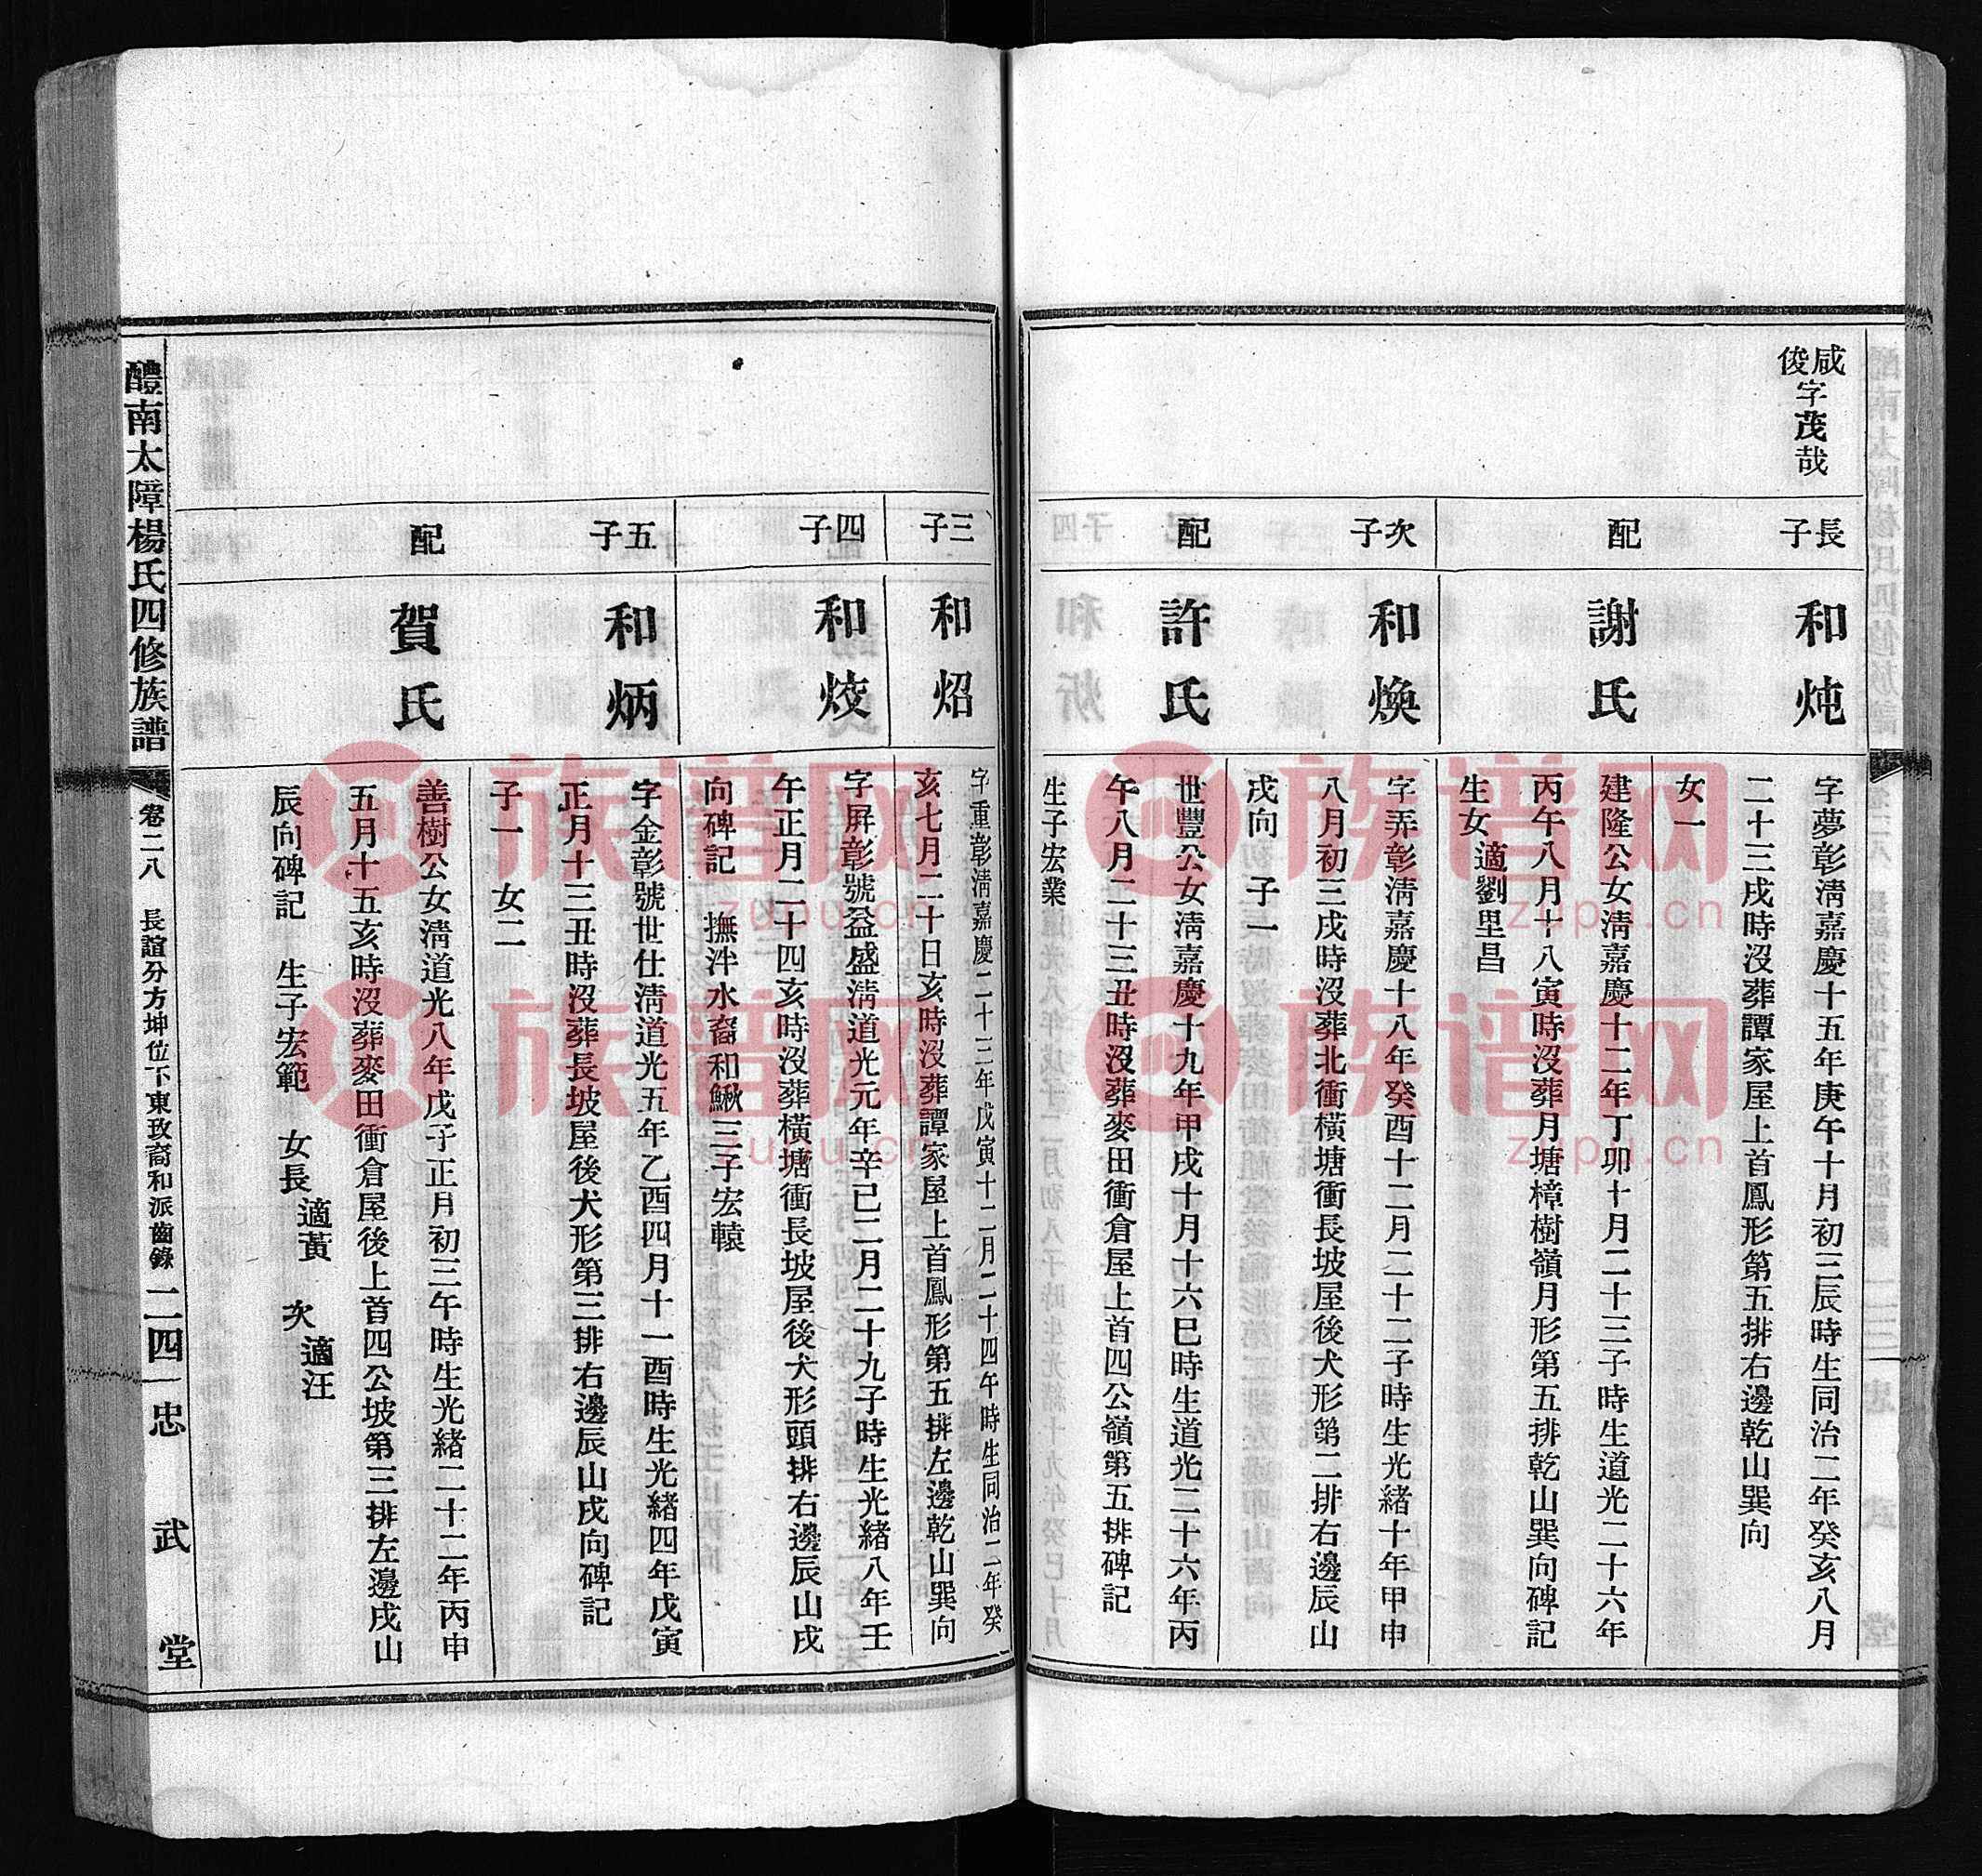 咸俊字茂哉
長子
和炖
字夢彰清嘉慶十五年庚午十月初三辰時生同治二年癸亥八月
二十三戌時沒葬譚家屋上首鳳形第五排右邊乾山巽向
女一
配
謝氏
建隆公女清嘉慶十二年丁卯十月二十三子時生道光二十六年
丙午八月十八寅時沒葬月塘樟樹嶺月形第五排乾山巽向碑記
生女適劉里昌
次子
和煥
字弄彰清嘉慶十八年癸酉十二月二十二子時生光緒十年甲申
八月初三戌時沒葬北衝橫塘衝長坡屋後犬形第二排右邊辰山
戌向 子一
配
許氏
世豐公女清嘉慶十九年甲戌十月十六巳時生道光二十六年丙
午八月二十三丑時沒葬麥田衝倉屋上首四公嶺第五排碑記
生子宏業
三子
和炤
字重彰清嘉慶二十三年戊寅十二月二十四午時生同治二年癸
亥七月二十日亥時沒葬譚家屋上首鳳形第五排左邊乾山巽向
四子
和烄
字屏彰號益盛清道光元年辛巳二月二十九子時生光緒八年壬
午正月二十四亥時沒葬橫塘衝長坡屋後犬形頭排右邊辰山戌
向碑記 撫泮水裔和鰍三子宏轅
五子
和炳
字金彰號世仕清道光五年乙酉四月十一酉時生光緒四年戊寅
正月十三丑時沒葬長坡屋後犬形第三排右邊辰山戌向碑記
子一 女二
配
賀氏
善樹公女清道光八年戊子正月初三午時生光緒二十二年丙申
五月十五亥時沒葬麥田衝倉屋後上首四公坡第三排左邊戌山
辰向碑記 生子宏範 女長適黃 次適汪
醴南太障楊氏四修族譜
卷二八 長誼分方坤位下東玫裔和派齒錄 二四 忠武堂
族谱网
zupu.cn
族谱网
zupu.cn
族谱网
zupu.cn
族谱网
zupu.cn